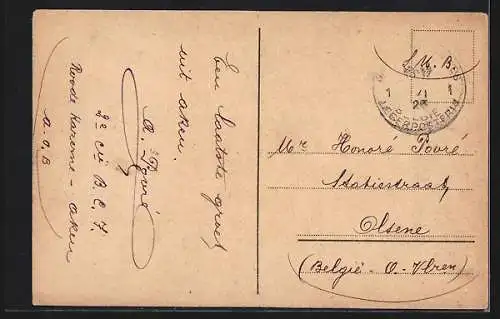 Een laatste groet
uit aken.
A. Povré
2e Cie B.C.T.
Roode Kazerne - aken
A.O.B
S.M.B
1 1
LEGERPOSTERIJ
Mr Honoré Povré
Statiestraat
Olsene
(België - O. Vlren)